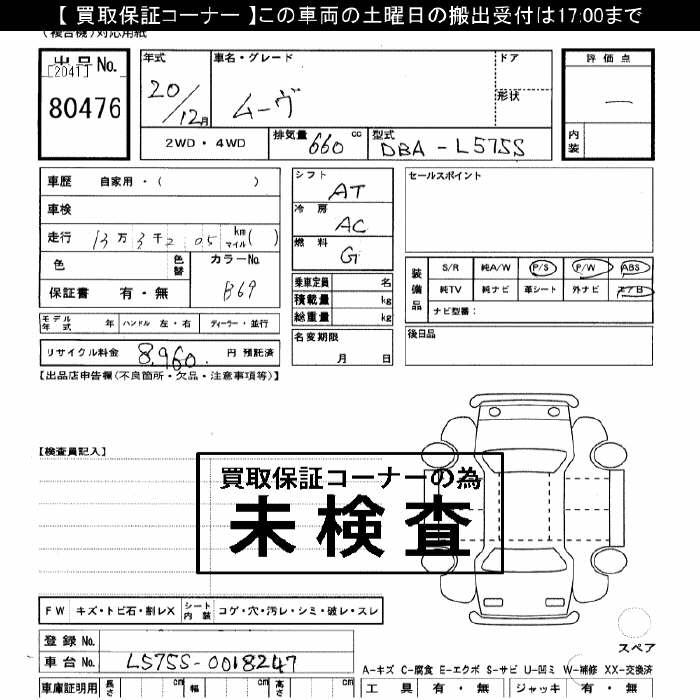 【 買取保証コーナー 】この車両の土曜日の搬出受付は17:00まで
(複合機)対応用紙
出品No.
[2041]
80476
年式
20/12月
車名・グレード
ムーヴ
ドア
形状
評価点
—
内装
2WD・4WD
排気量 660 cc
型式 DBA-L575S
車歴 自家用・( )
車検
走行 13万3千2 05 km マイル( )
色
色替
カラーNo. B69
保証書 有・無
シフト AT
冷房 AC
燃料 G
乗車定員 名
積載量 kg
総重量 kg
セールスポイント
装備品
S/R 純A/W P/S P/W ABS
純TV 純ナビ 革シート 外ナビ エアB
ナビ型番:
モデル年式 年 ハンドル 左・右 ディーラー・並行
リサイクル料金 8,960 円 預託済
名変期限
月 日
後日品
【出品店申告欄(不良箇所・欠品・注意事項等)】
【検査員記入】
買取保証コーナーの為
未検査
FW キズ・トビ石・割レX シート内装 コゲ・穴・汚レ・シミ・破レ・スレ
登録No.
車台No. L575S-0018247
スペア
A-キズ C-腐食 E-エクボ S-サビ U-凹ミ W-補修 XX-交換済
車庫証明用 長さ cm 幅 cm 高さ cm
工具 有・無 ジャッキ 有・無